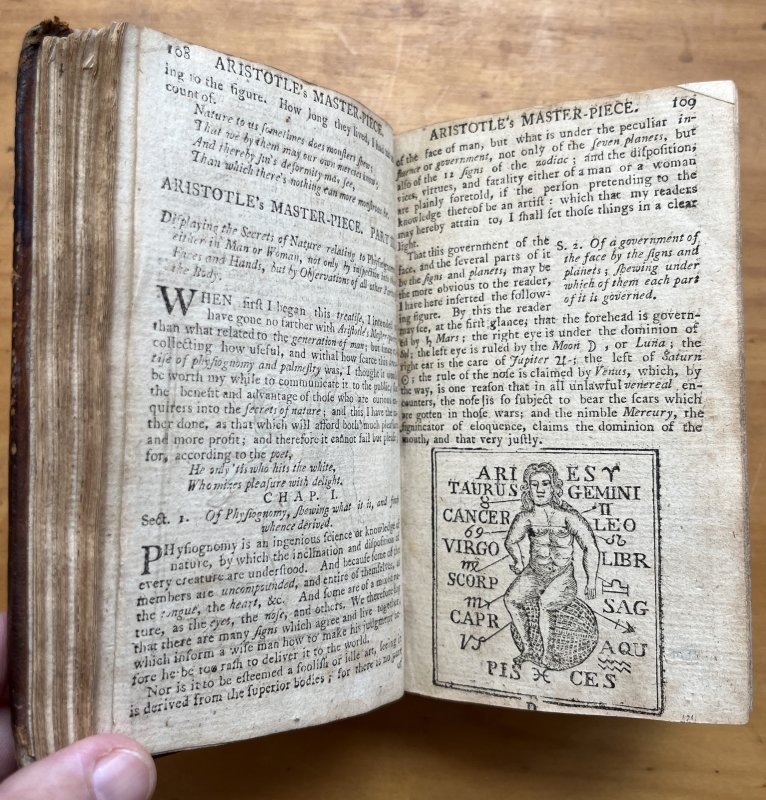 108 ARISTOTLE's MASTER-PIECE.
ing to the figure. How long they lived, I had
count of.
Nature to us ſometimes does monſters ſhew,
That we by them may our own mercies know;
And thereby ſin's deformity may ſee,
Than which there's nothing can more monſtrous be.
ARISTOTLE's MASTER-PIECE. PART
Diſplaying the Secrets of Nature relating to Phyſiognomy
either in Man or Woman, not only by inſpection into the
Faces and Hands, but by Obſervations of all other Parts of
the Body.
WHEN firſt I began this treatiſe, I intended
have gone no farther with Ariſtotle's Maſter-piece
than what related to the generation of man; but
collecting how uſeful, and withal how ſcarce this
tiſe of phyſiognomy and palmeſtry was, I thought it would
be worth my while to communicate it to the public, for
the benefit and advantage of thoſe who are curious
quireſs into the ſecrets of nature; and this I have the
ther done, as that which will afford both much pleaſure
and more profit; and therefore it cannot fail but pleaſe
for, according to the poet,
He only 'tis who hits the white,
Who mixes pleaſure with delight.
CHAP. I.
Sect. 1. Of Phyſiognomy, ſhewing what it is, and from
whence derived.
PHyſiognomy is an ingenious ſcience or knowledge of
nature, by which the inclination and diſpoſition of
every creature are underſtood. And becauſe ſome of the
members are uncompounded, and entire of themſelves, as
the tongue, the heart, &c. And ſome are of a mixed na-
ture, as the eyes, the noſe, and others. We therefore ſay
that there are many ſigns which agree and live together,
which inform a wiſe man how to make his judgment be-
fore he be too raſh to deliver it to the world.
Nor is it to be eſteemed a fooliſh or idle art, ſeeing it
is derived from the ſuperior bodies; for there is no part
of
ARISTOTLE's MASTER-PIECE. 109
of the face of man, but what is under the peculiar in-
fluence or government, not only of the ſeven planets, but
alſo of the 12 ſigns of the zodiac; and the diſpoſition,
vices, virtues, and fatality either of a man or a woman
are plainly foretold, if the perſon pretending to the
knowledge thereof be an artiſt: which that my readers
may hereby attain to, I ſhall ſet thoſe things in a clear
light.
That this government of the
face, and the ſeveral parts of it
by the ſigns and planets, may be
the more obvious to the reader,
I have here inſerted the follow-
ing figure. By this the reader
S. 2. Of a government of
the face by the ſigns and
planets; ſhewing under
which of them each part
of it is governed.
may ſee, at the firſt glance; that the forehead is govern-
ed by ♄ Mars; the right eye is under the dominion of
Sol; the left eye is ruled by the Moon ☽, or Luna; the
right ear is the care of Jupiter ♃; the left of Saturn
☉; the rule of the noſe is claimed by Venus, which, by
the way, is one reaſon that in all unlawful venereal en-
counters, the noſe is ſo ſubject to bear the ſcars which
are gotten in thoſe wars; and the nimble Mercury, the
ſignificator of eloquence, claims the dominion of the
mouth, and that very juſtly.
ARI ES ♈
TAURUS GEMINI
♉ ♊
CANCER LEO
♋ ♌
VIRGO LIBR
♍ ♎
SCORP SAG
♏ ♐
CAPR AQU
♑ ♒
PIS ♓ CES